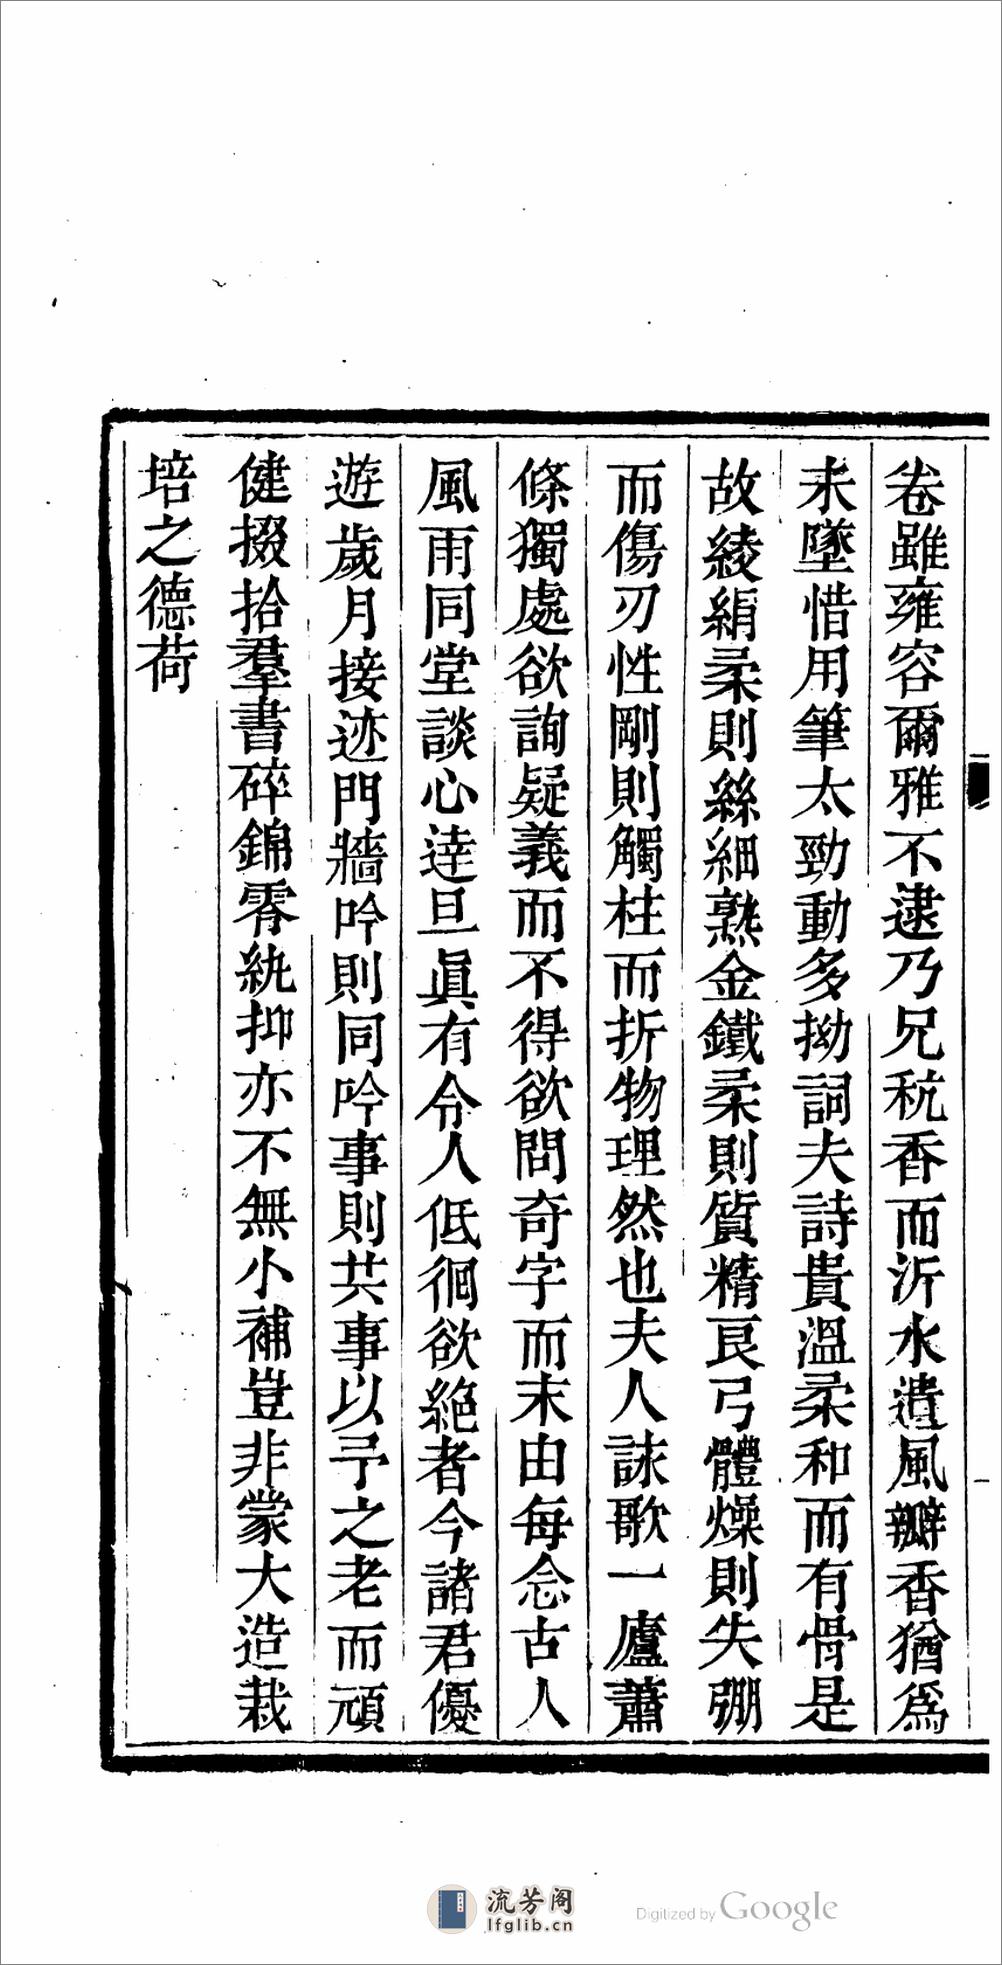 卷雖雍容爾雅不逮乃兄秔香而沂水遺風瓣香猶爲
未墜惜用筆太勁動多拗詞夫詩貴溫柔和而有骨是
故綾絹柔則絲細熟金鐵柔則質精良弓體燥則失弸
而傷刃性剛則觸柱而折物理然也夫人誺歌一廬蕭
條獨處欲詢疑義而不得欲問奇字而末由每念古人
風雨同堂談心達旦眞有令人低徊欲絕者今諸君優
遊歲月接迹門牆吟則同吟事則共事以予之老而頑
健掇拾羣書碎錦零紈抑亦不無小補豈非蒙大造栽
培之德荷
流芳阁
lfglib.cn
Digitized by Google